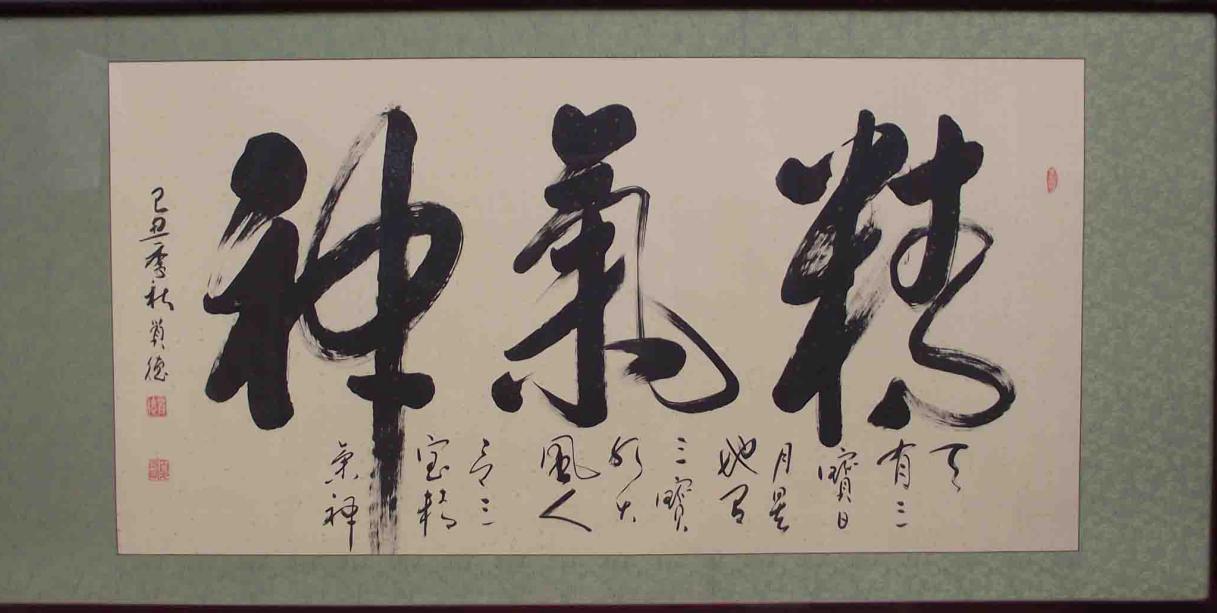 精氣神
天
有三
寶日
月星
地有
三寶
水火
風人
有三
宝精
氣神
己丑季秋德